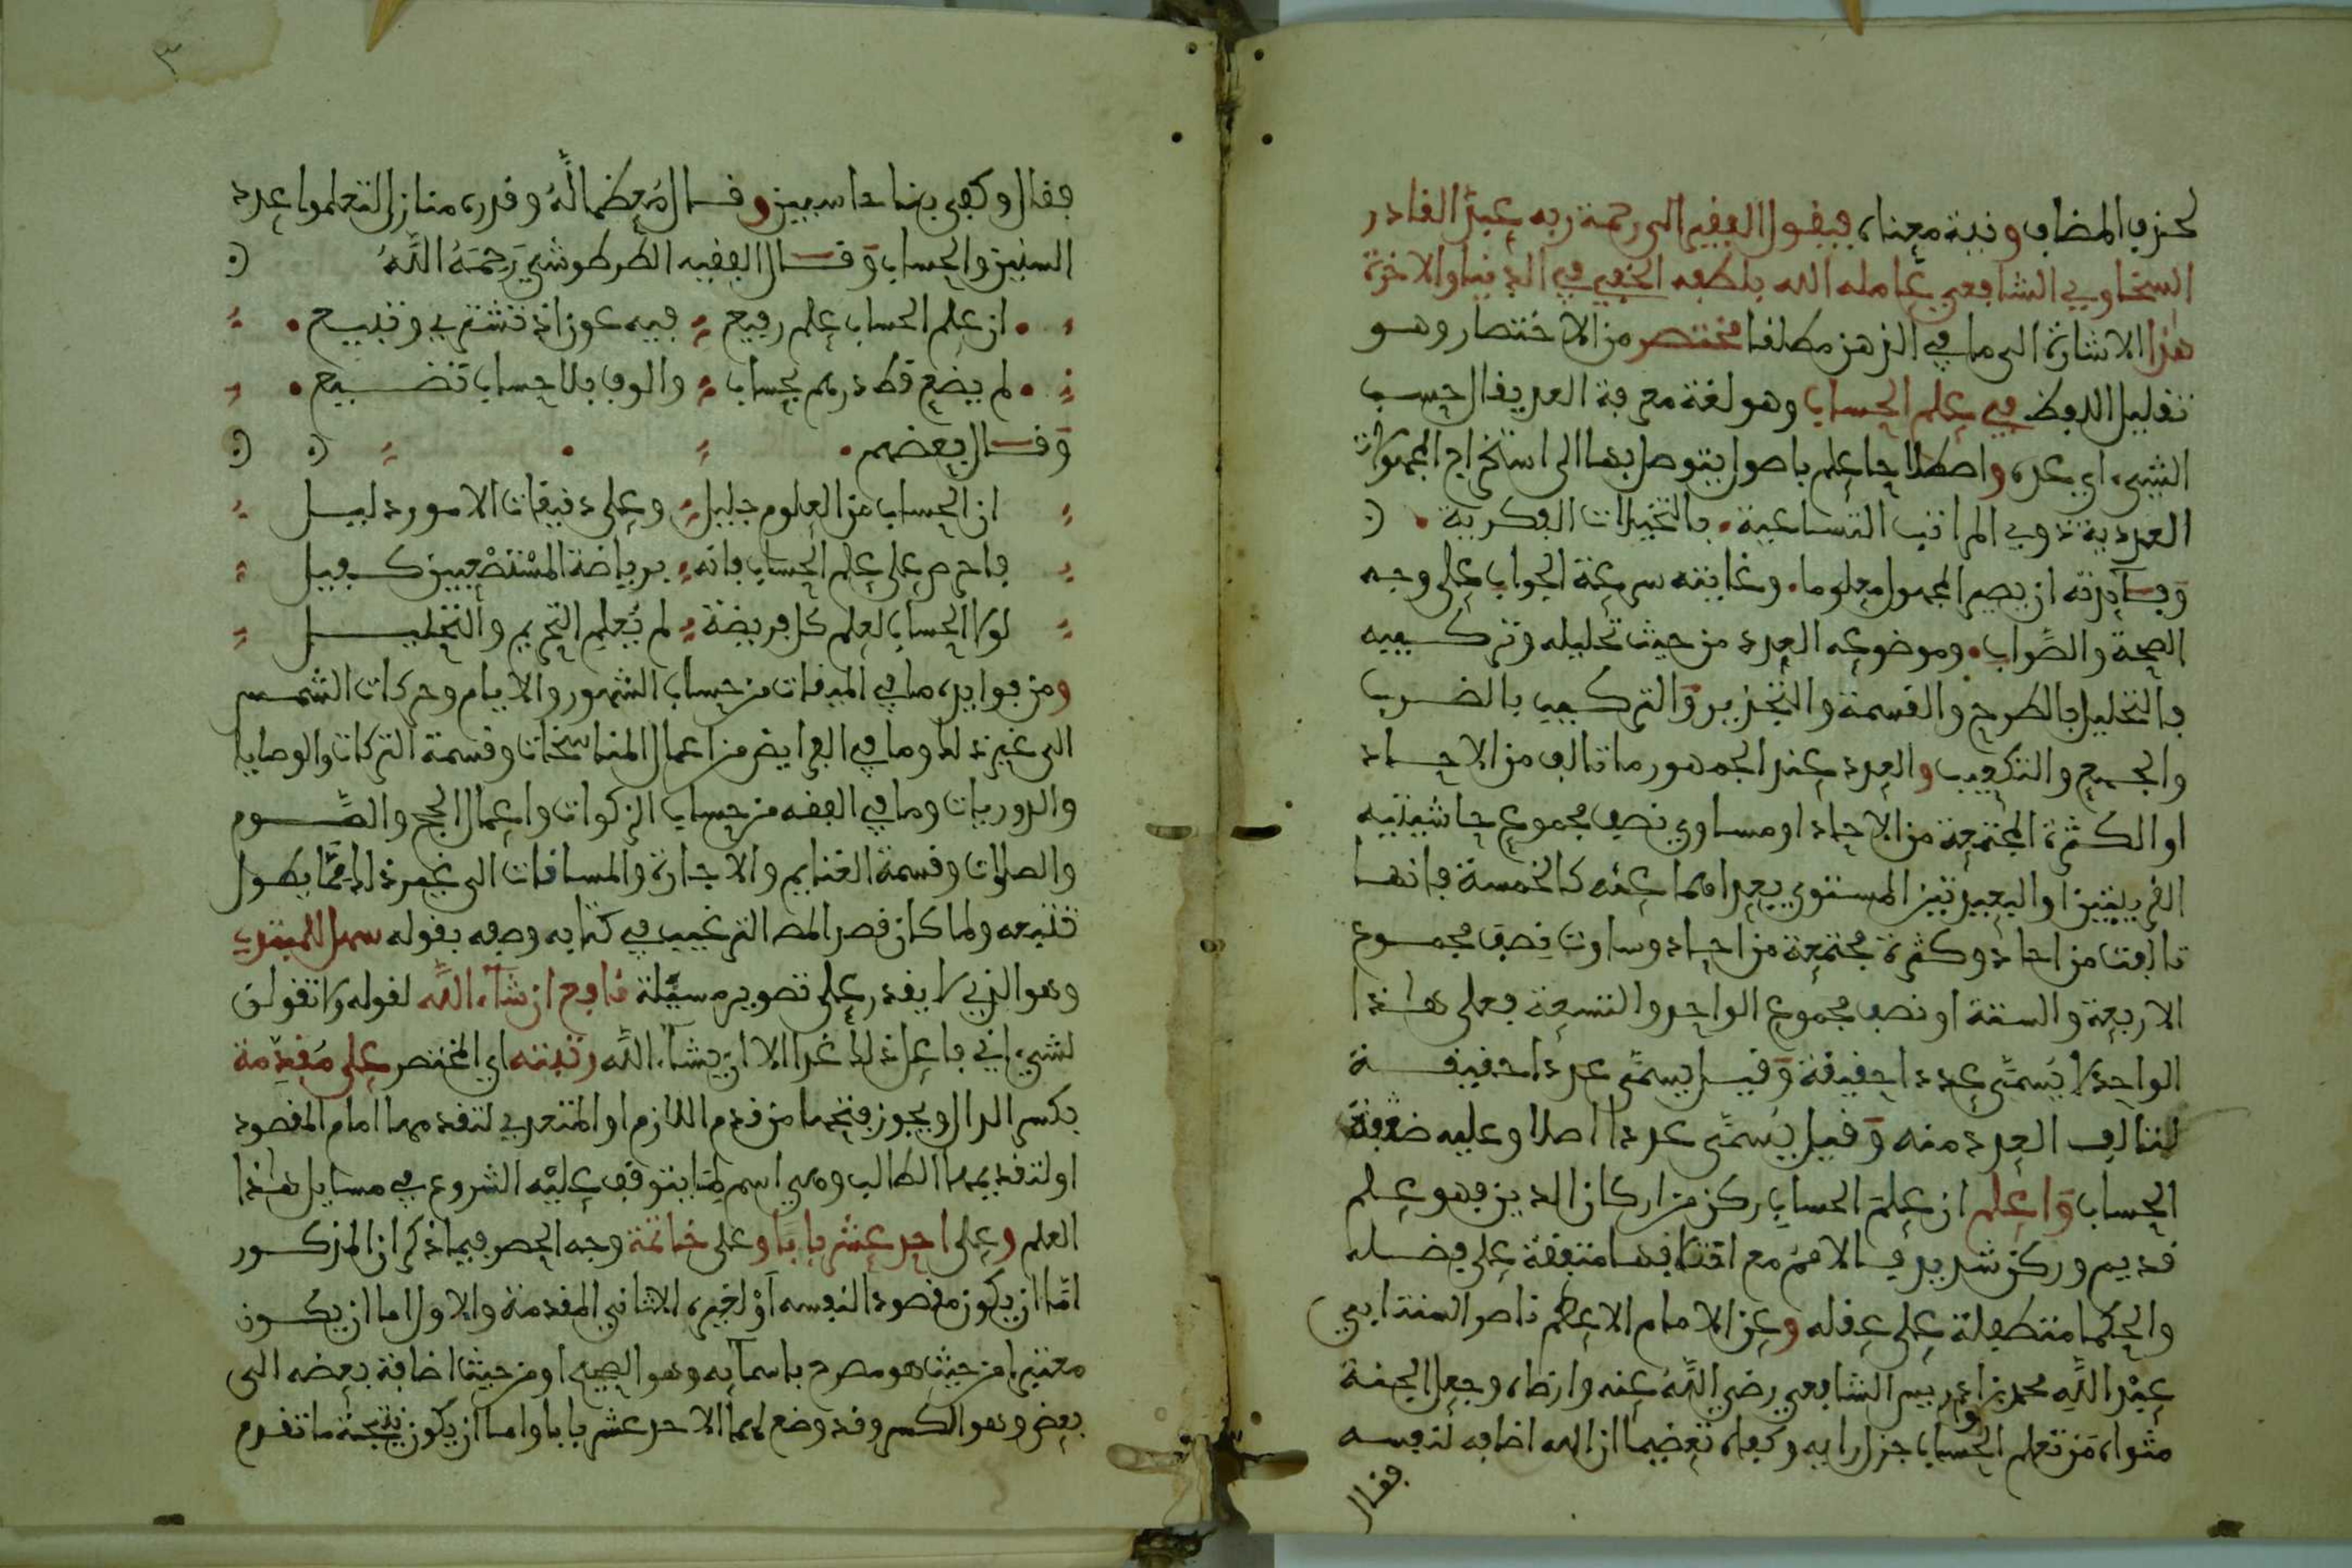 لحذف المضاف ونية معناه فيقول الفقير الى رحمة ربه عبد القادر
السخاوي الشافعي عامله الله بلطفه الخفي في الدنيا والاخرة
هذا الاشارة الى ما في الذهن مطلقا مختصر من الاختصار وهو
تقليل اللفظ في علم الحساب وهو لغة معرفة العد يقال حسب
الشيء اي عده واصطلاحا علم باصول يتوصل بها الى استخراج المجهولات
العددية ذوي المراتب التساعية بالتخيلات الفكرية
وفائدته ان يصير المجهول معلوما وغايته سرعة الجواب على وجه
الصحة والصواب وموضوعه العدد من حيث تحليله وتركيبه
فالتحليل بالطرح والقسمة والتجذير والتركيب بالضرب
والجمع والتكعيب والعدد عند الجمهور ما تالف من الاحاد
او الكثرة المجتمعة من الاحاد او مساوي نصف مجموع حاشيتيه
القريبتين او البعيدتين المستوي بعداهما عنه كالخمسة فانها
تالفت من احاد وكثرة مجتمعة من احاد وساوت نصف مجموع
الاربعة والستة او نصف مجموع الواحد والتسعة فعلى هذا
الواحد لا يُسمَّى عددا حقيقة وقيل يسمَّى عددا حقيقة
لتالف العدد منه وقيل يُسمَّى عددا اصلا وعليه
الحساب واعلم ان علمَ الحساب ركن من اركان الدين فهو علم
قديم وركن شديد الامم مع متفقة على فضله
والحكما متطفلة على عقله وعن الامام الاعظم ناصر السنة ابي
عبْد اللَّه محمد بن ادريس الشافعي رضي اللَّهُ عنه وارضاه وجعل الجنة
مثواه مَن تعلم الحساب جزل رايه وكفاه تعضيما ان الله اضافه لنفسه
فقال
٣
فقال وكفى بنا حاسبين وقال مُعظما لَّهُ وقدره منازل لتعلموا عدد
السنين والحساب وقال الفقيه الطرطوشي رَحِمَهُ اللَّهُ
ان علم الحساب علم رفيع فيه عون اذ تشتري وتبيع
لم يضع قط درهم بحساب والوف بلا حساب تضيع
وقال بعضهم
ان الحساب من العلوم جليل وعلى دقيقات الامور دليل
فاحرص على علم الحساب فانه برياضة المسْتصْعبين كفيل
لولا الحساب لعلم كل فريضة لم يُعلم التحريم والتحليل
ومن فوايده ما في الميقات من حساب الشهور والايام وحركات الشمس
الى غير ذلك وما في الفرايض من اعمال المناسخات وقسمة التركات والوصايا
والدوريات وما في الفقه من حساب الزكوات واعمال الحج والصَّوم
والصلوات وقسمة الغنايم والاجارة والمسافات الى غير ذلك ممَّا يطول
تتبعه ولما كان قصد المص الترغيب في كتابه وصفه بقوله سهل للمبتدي
وهو الذي لا يقدر على تصوير مسيَلة نافع ان شآء اللَّه لقوله ولا تقولن
لشيء اني فاعل ذلك غدا الا ان يشآء اللَّه رتبته اي المختصر على مُقدِّمة
بكسر الدال ويجوز فتحها من قدم اللازم او المتعدي لتقدمها امام المقصود
او لتقديمها الطالب وهي اسم لمَا يتوقف عليْه الشروع في مسايل هذا
العلم وعلى احد عشر بابَا وعلى خاتمة وجه الحصر فيما ذكر ان المذكور
امَّا ان يكون مقصودا لنفسه أوْ لغيره الثاني المقدمة والاول اما ان يكون
معتبرا من حيث هو مصرح باسمآيه وهو الصحيح او من حيث اضافة بعضه الى
بعض وهو الكسر وقد وضع لهما الاحد عشر بابا واما ان يكون نتيجة ما تقدم